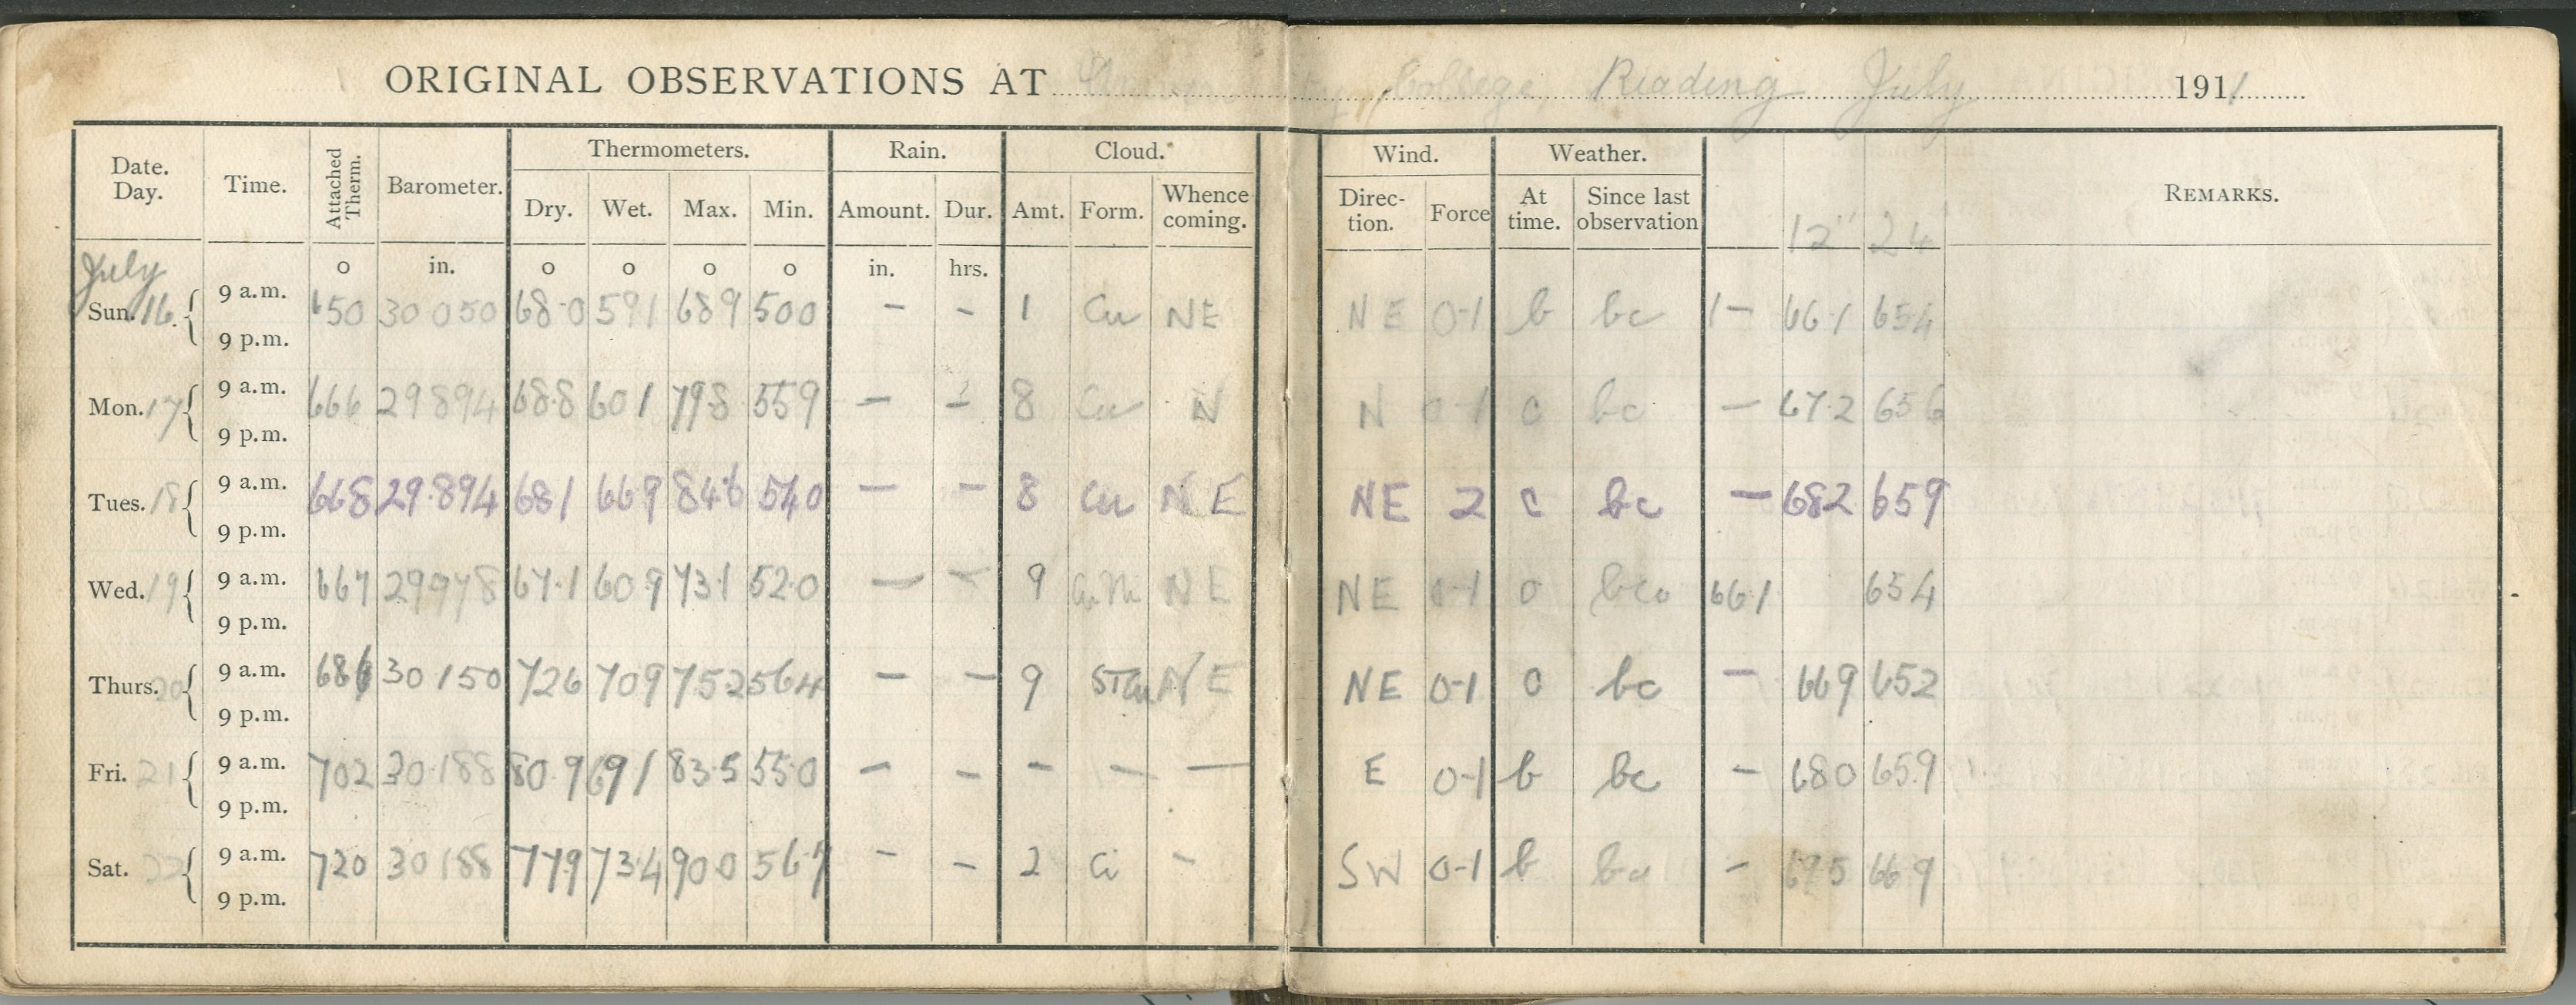 ORIGINAL OBSERVATIONS AT University College, Reading July 1911
Date. Day. Time. Attached Therm. Barometer. Thermometers. Rain. Cloud. Wind. Weather. REMARKS.
Dry. Wet. Max. Min. Amount. Dur. Amt. Form. Whence coming. Direc- tion. Force At time. Since last observation 12" 24
July o in. o o o o in. hrs.
Sun. 16 9 a.m. 650 30 050 68.0 591 689 500 – – 1 Cu NE NE 0-1 b bc 1– 661 654
9 p.m.
Mon. 17 9 a.m. 666 29894 688 601 798 559 – – 8 Cu N N 0-1 c bc – 672 656
9 p.m.
Tues. 18 9 a.m. 668 29.894 681 669 846 540 – – 8 Cu NE NE 2 c bc – 682 659
9 p.m.
Wed. 19 9 a.m. 667 29978 67.1 609 731 520 – – 9 NE NE 0-1 o bco 661 654
9 p.m.
Thurs. 20 9 a.m. 30 150 726 709 752 564 – – 9 STCu NE NE 0-1 o bc – 669 652
9 p.m.
Fri. 21 9 a.m. 702 30.188 80.9 691 83.5 550 – – – – — E 0-1 b bc – 680 659
9 p.m.
Sat. 22 9 a.m. 720 30188 779 734 900 567 – – 2 Ci – SW 0-1 b – 695 669
9 p.m.